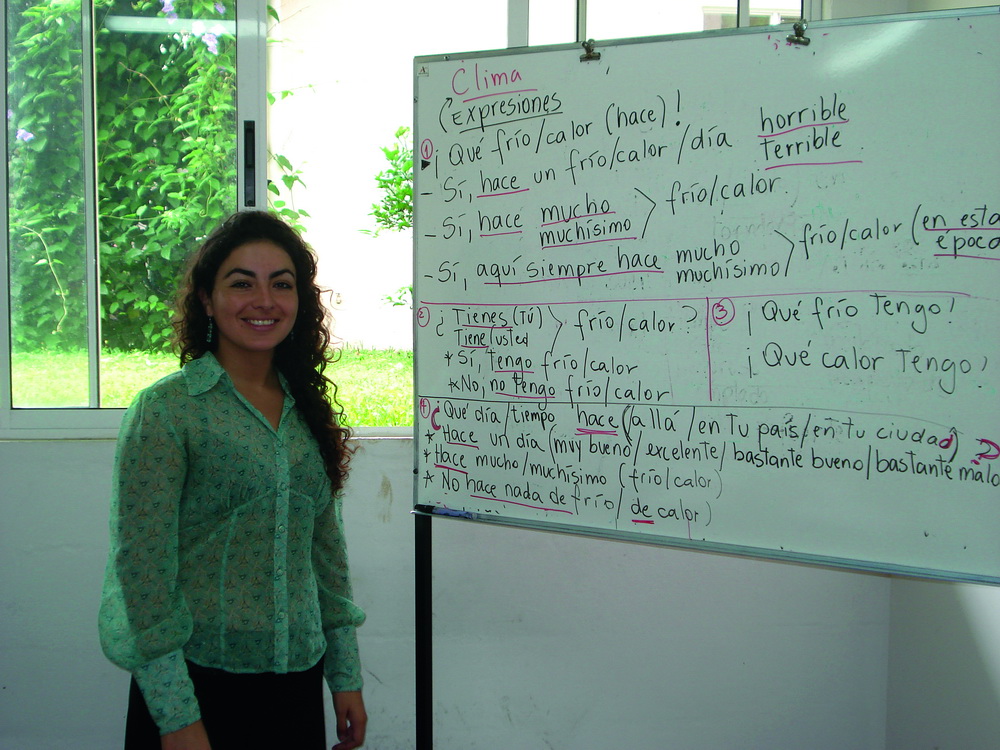 Clima
Expresiones
① ¡Qué frío/calor (hace)!
- Sí, hace un frío/calor/día horrible
terrible
- Sí, hace mucho
muchísimo > frío/calor.
- Sí, aquí siempre hace mucho
muchísimo > frío/calor (en esta
época
② ¿Tienes (Tú)
Tiene usted > frío/calor?
* Sí, Tengo frío/calor
* No, no tengo frío/calor
③ ¡Qué frío Tengo!
¡Qué calor Tengo!
④ ¿Qué día/tiempo hace (allá/en Tu país/en tu ciudad)?
* Hace un día (muy bueno/excelente/bastante bueno/bastante malo
* Hace mucho/muchísimo (frío/calor)
* No hace nada de frío/de calor)